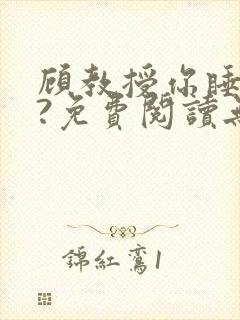 顾教授你睡
?免費閱讀
錦紅鸞1